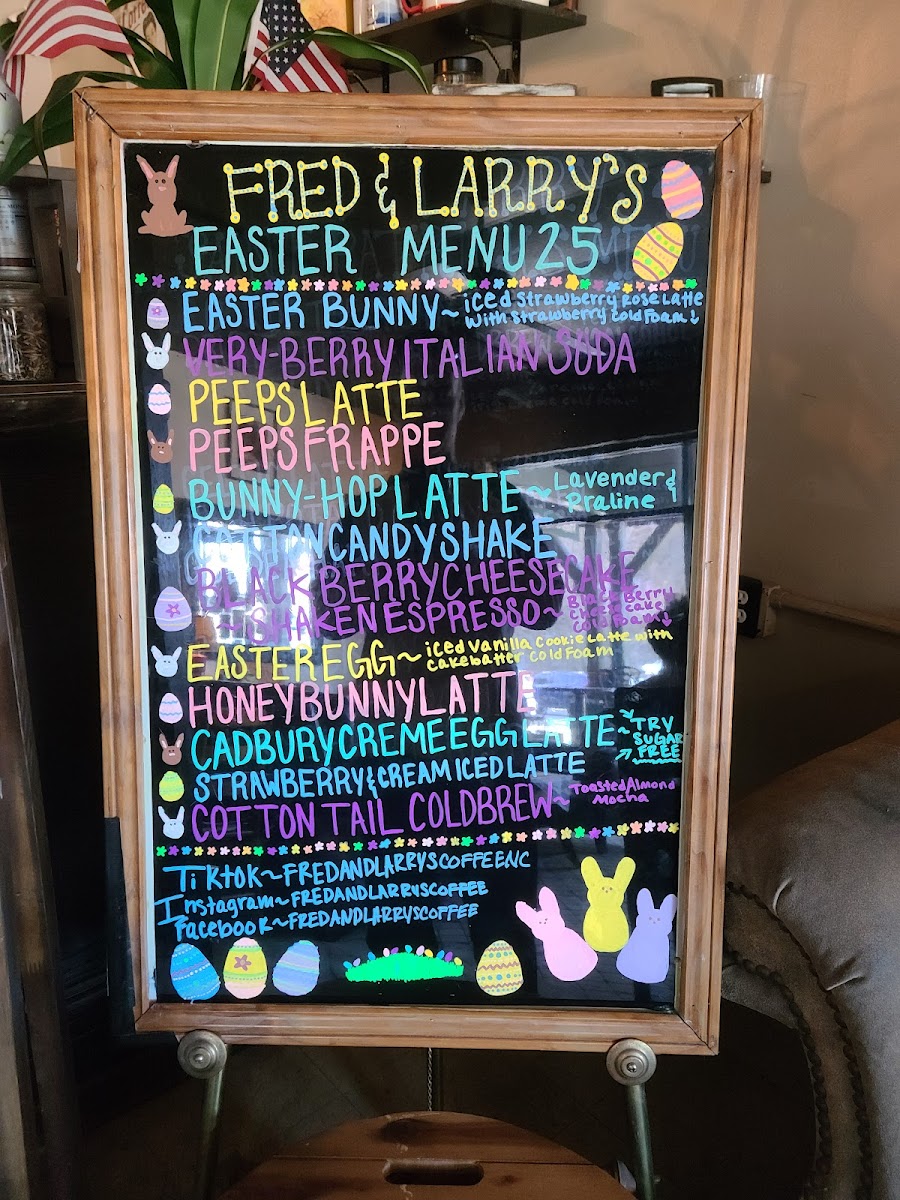 FRED & LARRY'S
EASTER MENU 25
EASTER BUNNY~ iced Strawberry Rose Latte
with Strawberry Cold Foam
VERY-BERRY ITALIAN SODA
PEEPS LATTE
PEEPS FRAPPE
BUNNY-HOP LATTE~ Lavender &
Praline
COTTON CANDY SHAKE
BLACKBERRY CHEESECAKE
~SHAKEN ESPRESSO~ Blackberry
Cheesecake
Cold Foam
EASTER EGG~ iced Vanilla Cookie Latte with
cakebatter Cold Foam
HONEY BUNNY LATTE
CADBURY CREME EGG LATTE~ TRY
SUGAR
FREE
STRAWBERRY & CREAM ICED LATTE
COTTON TAIL COLDBREW~ Toasted Almond
Mocha
Tiktok~FREDANDLARRYSCOFFEENC
Instagram~FREDANDLARRYSCOFFEE
Facebook~FREDANDLARRYSCOFFEE